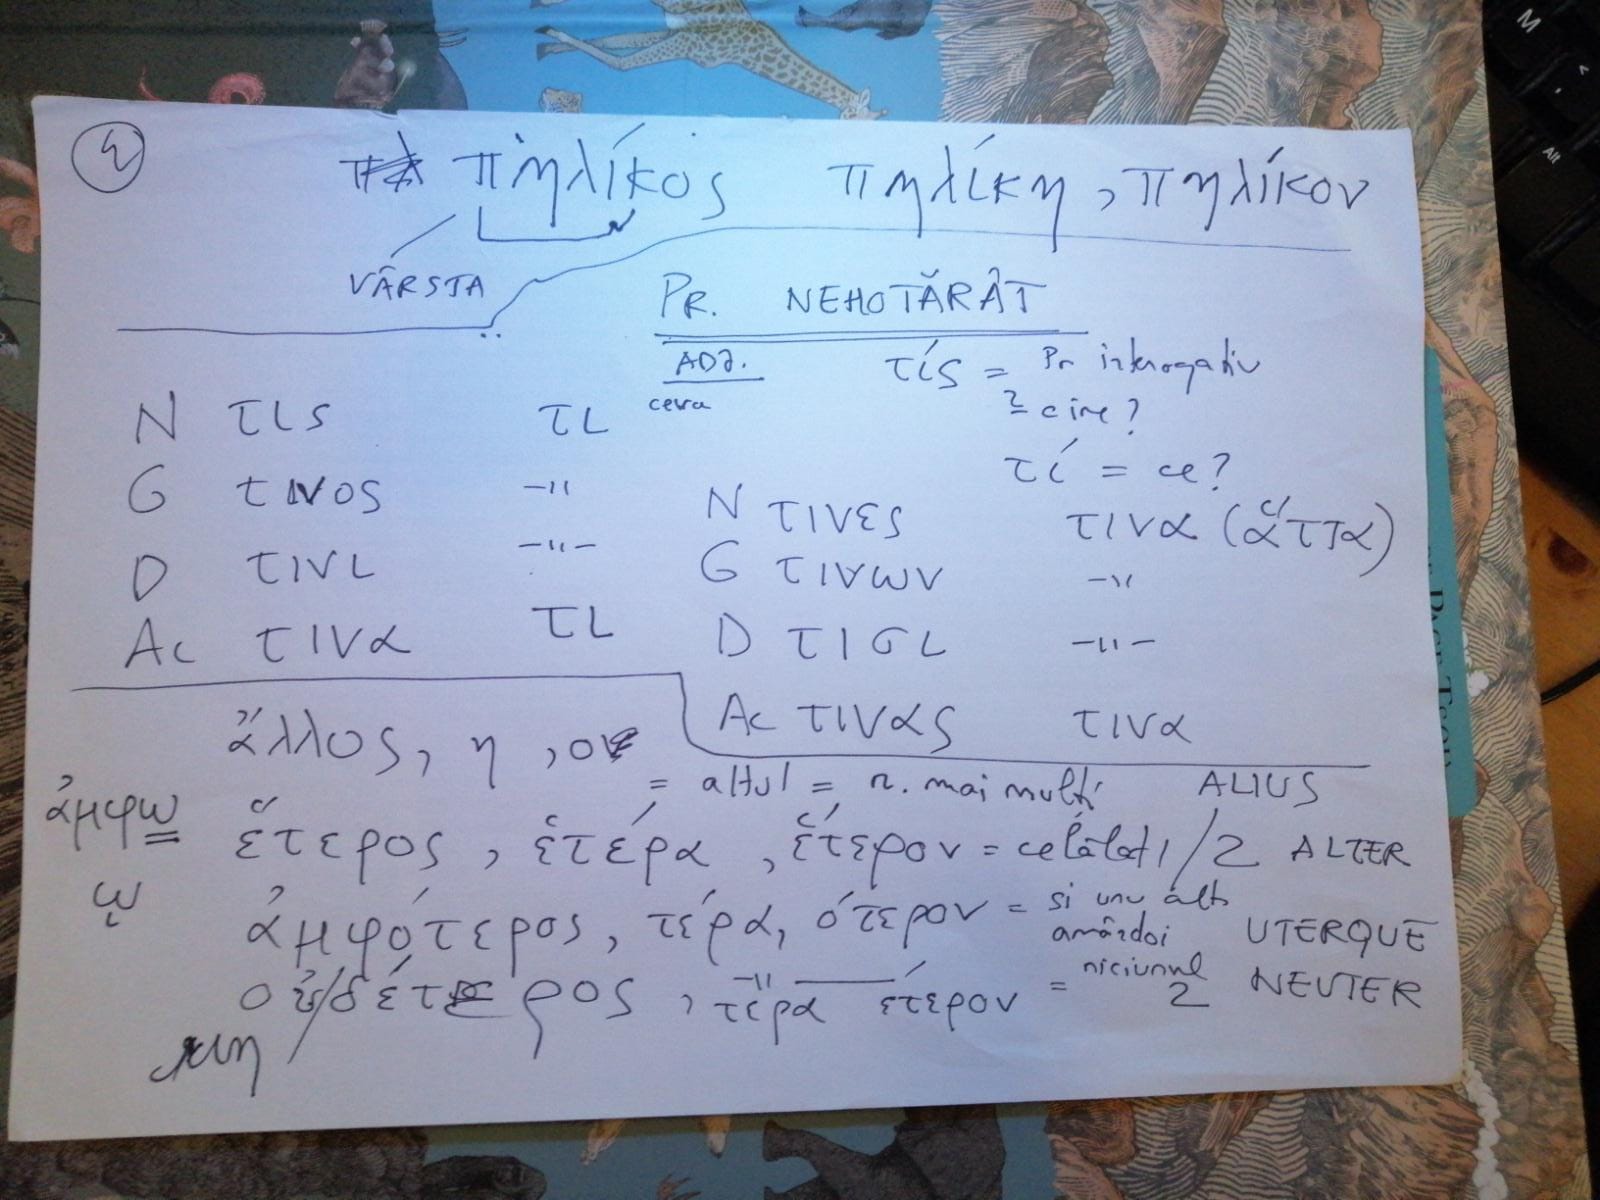 πηλίκος πηλίκη, πηλίκον
VÂRSTA
PR. NEHOTĂRÂT
ADJ.
ceva
τίς = Pr interogativ
= cine?
τί = ce?
N τις τι
G τινος -"
D τινι -"-
Ac τινα τι
N τινες τινα (ἅττα)
G τινων -"
D τισι -"-
Ac τινας τινα
ἄλλος, η, ον
= altul = n. mai mulți ALIUS
ἄμφω
ῳ
ἕτερος, ἑτέρα, ἕτερον = celălalt / 2 ALTER
ἀμφότερος, τέρα, ότερον = si unu alt
amândoi UTERQUE
οὐ/δέτερος, τερα έτερον = niciunul
2 NEUTER
μη
M
Alt